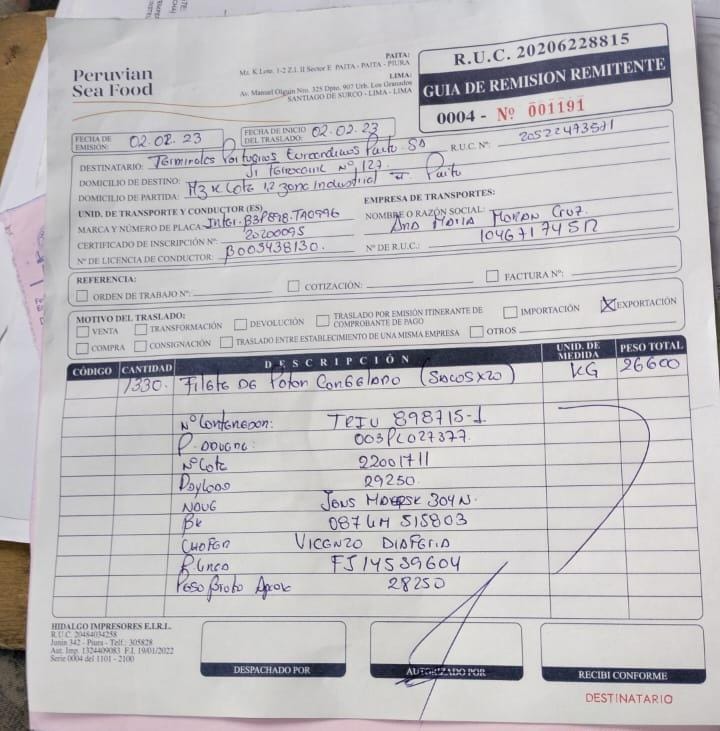 Peruvian
Sea Food
PAITA:
Mz. K Lote. 1-2 Z.I. II Sector E PAITA - PAITA - PIURA
LIMA:
Av. Manuel Olguin Nro. 325 Dpto. 907 Urb. Los Granados
SANTIAGO DE SURCO - LIMA - LIMA
R.U.C. 20206228815
GUIA DE REMISION REMITENTE
0004 - Nº 001191
FECHA DE EMISIÓN: 02.02.23
FECHA DE INICIO DEL TRASLADO: 02.02.23
DESTINATARIO: Terminales Portuarios Euroandinos Paita SA R.U.C. Nº: 20522473571
DOMICILIO DE DESTINO: Jr Ferrocarril Nº 127.
DOMICILIO DE PARTIDA: Mz K Lote 1,2 zona Industrial II Paita
UNID. DE TRANSPORTE Y CONDUCTOR (ES)
MARCA Y NÚMERO DE PLACA: Inter. B3P898-TA0996
CERTIFICADO DE INSCRIPCIÓN Nº: 20200095
Nº DE LICENCIA DE CONDUCTOR: B003438130.
EMPRESA DE TRANSPORTES:
NOMBRE O RAZÓN SOCIAL: Ana Maria Moran Cruz.
Nº DE R.U.C.:
REFERENCIA:
ORDEN DE TRABAJO Nº: COTIZACIÓN: FACTURA Nº:
MOTIVO DEL TRASLADO:
VENTA TRANSFORMACIÓN DEVOLUCIÓN TRASLADO POR EMISIÓN ITINERANTE DE COMPROBANTE DE PAGO IMPORTACIÓN X EXPORTACIÓN
COMPRA CONSIGNACIÓN TRASLADO ENTRE ESTABLECIMIENTO DE UNA MISMA EMPRESA OTROS
CÓDIGO CANTIDAD DESCRIPCIÓN UNID. DE MEDIDA PESO TOTAL
1330. Filete de Poton Congelado (Sacos x 20) KG 26600
Nº Contenedor: TRIU 898715-1
P. Aduana: 003PL027377.
Nº Lote 22001711
Payload 29250.
Nave Jens Maersk 304N.
Bk 087LM 515803
Chofer Vicenzo Diaferia
P. Linea FJ14539604
Peso Bruto Aprox 28250
HIDALGO IMPRESORES E.I.R.L.
R.U.C. 20484034258
Junin 342 - Piura - Telf.: 305828
Aut. Imp. 1324409083 F.I. 19/01/2022
Serie 0004 del 1101 - 2100
DESPACHADO POR
AUTORIZADO POR
RECIBI CONFORME
DESTINATARIO